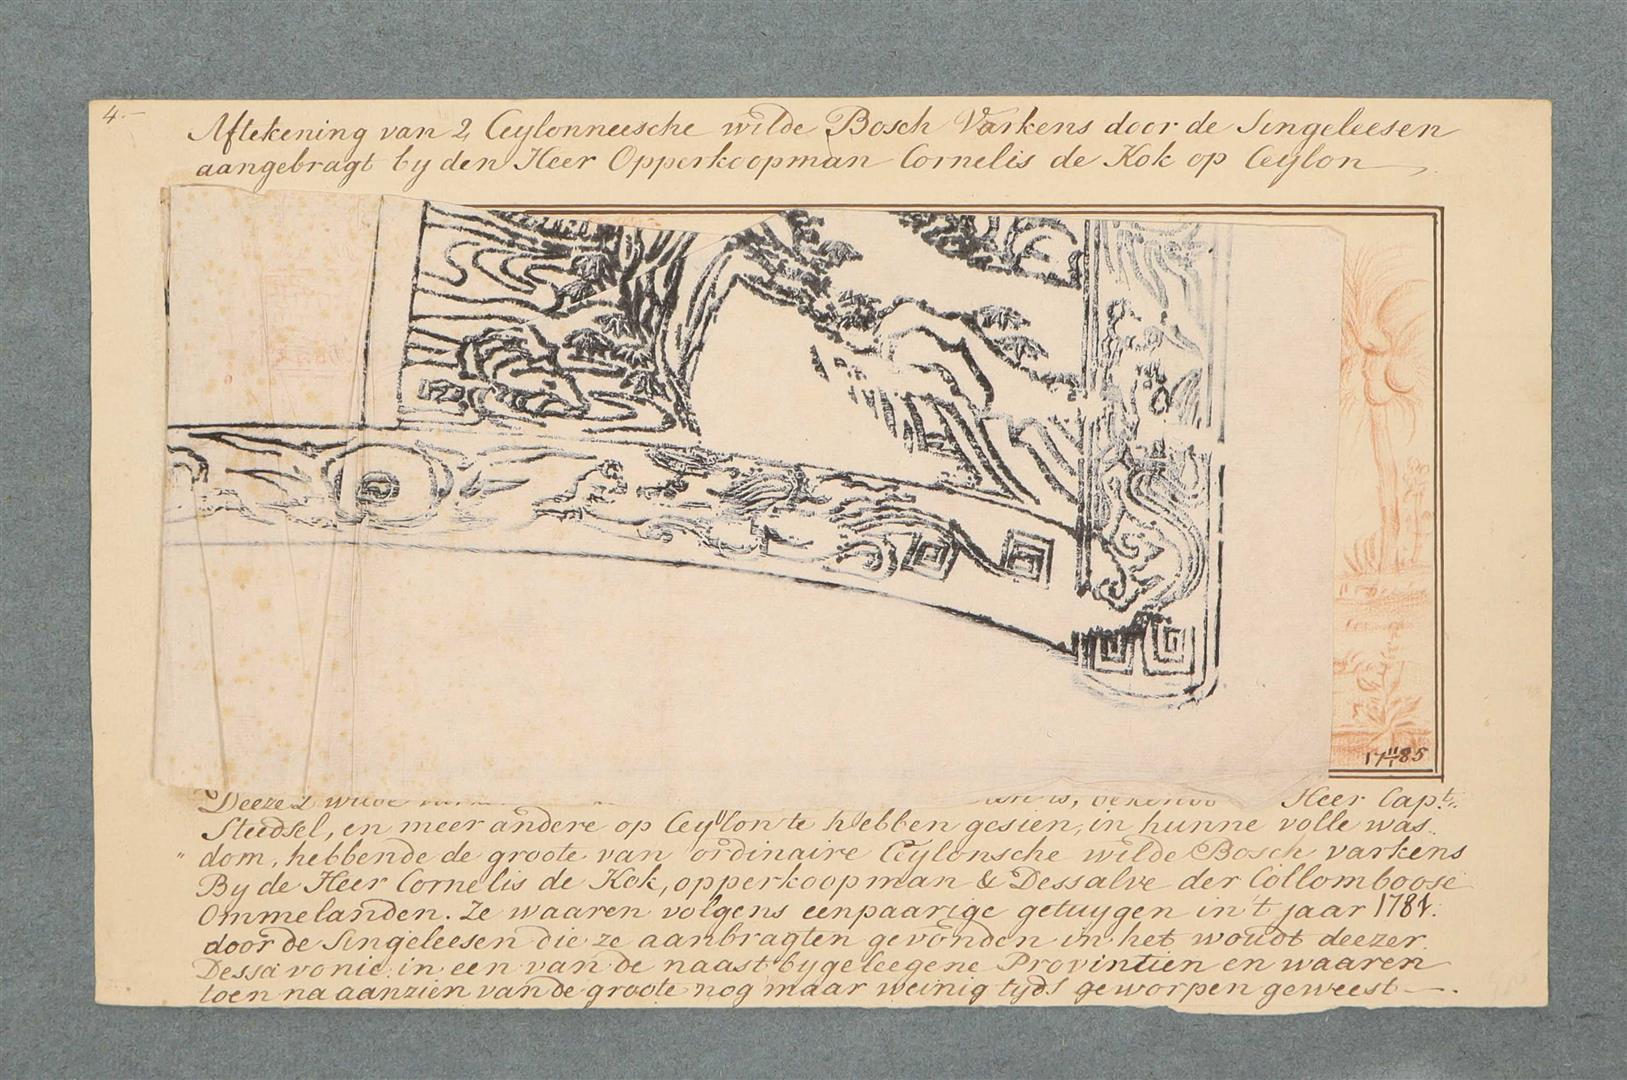 4.-
Aftekening van 2 Ceylonneesche wilde Bosch Varkens door de Singeleesen
aangebragt by den Heer Opperkoopman Cornelis de Kok op Ceylon
17 11/1 85
Deeze 2 wilde Heer Capt.
Steedsel, en meer andere op Ceylon te hebben gesien, in hunne volle was„
„ dom, hebbende de groote van ordinaire Ceylonsche wilde Bosch varkens
By de Heer Cornelis de Kok, opperkoopman & Dessalve der Collomboose
Ommelanden. Ze waaren volgens eenpaarige getuygen in't jaar 1781.
door de Singeleesen die ze aanbragten gevonden in het woudt deezer
Dessavonie in een van de naastbygeleegene Provintien en waaren
toen na aanzien van de groote nog maar weinig tyds geworpen geweest —.